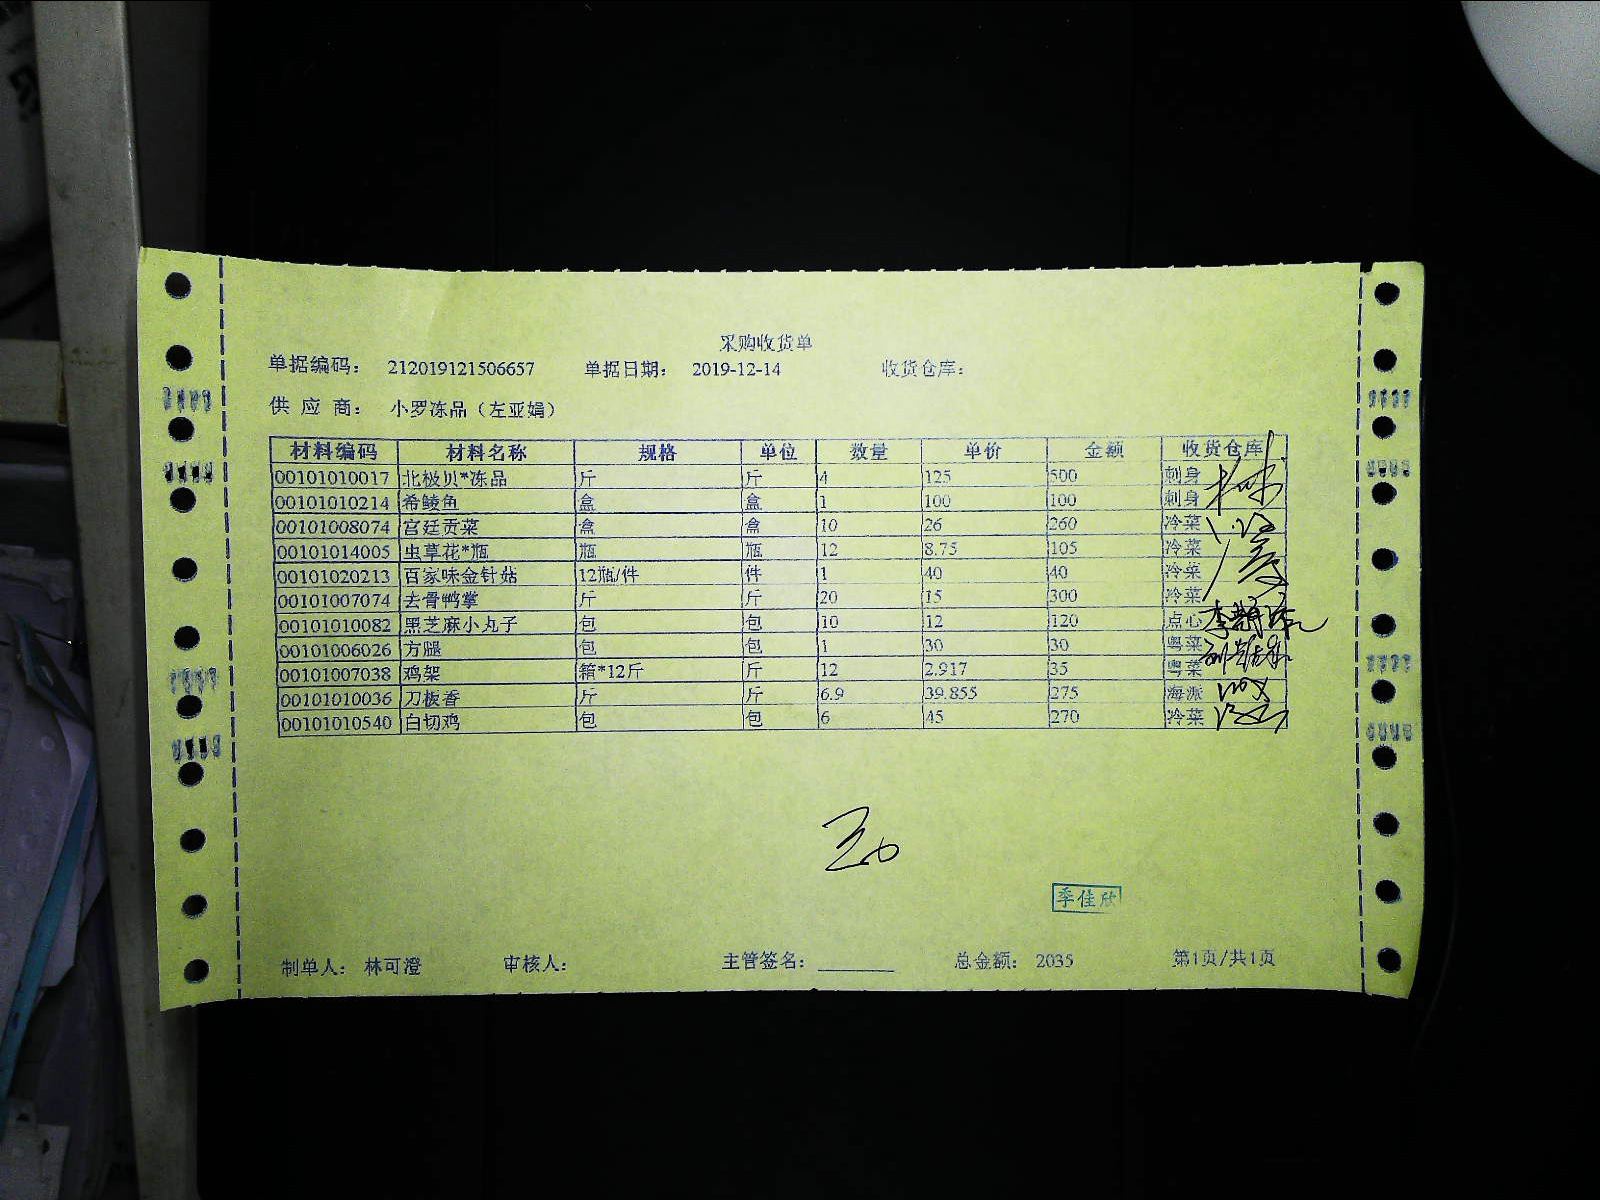 采购收货单
单据编码： 212019121506657 单据日期： 2019-12-14 收货仓库：
供 应 商： 小罗冻品（左亚娟）
材料编码 材料名称 规格 单位 数量 单价 金额 收货仓库
00101010017 北极贝*冻品 斤 斤 4 125 500 刺身
00101010214 希鲮鱼 盒 盒 1 100 100 刺身
00101008074 宫廷贡菜 盒 盒 10 26 260 冷菜
00101014005 虫草花*瓶 瓶 瓶 12 8.75 105 冷菜
00101020213 百家味金针菇 12瓶/件 件 1 40 40 冷菜
00101007074 去骨鸭掌 斤 斤 20 15 300 冷菜
00101010082 黑芝麻小丸子 包 包 10 12 120 点心
00101006026 方腿 包 包 1 30 30 粤菜
00101007038 鸡架 箱*12斤 斤 12 2.917 35 粤菜
00101010036 刀板香 斤 斤 6.9 39.855 275 海派
00101010540 白切鸡 包 包 6 45 270 冷菜
季佳欣
制单人： 林可澄 审核人： 主管签名：________ 总金额： 2035 第1页/共1页